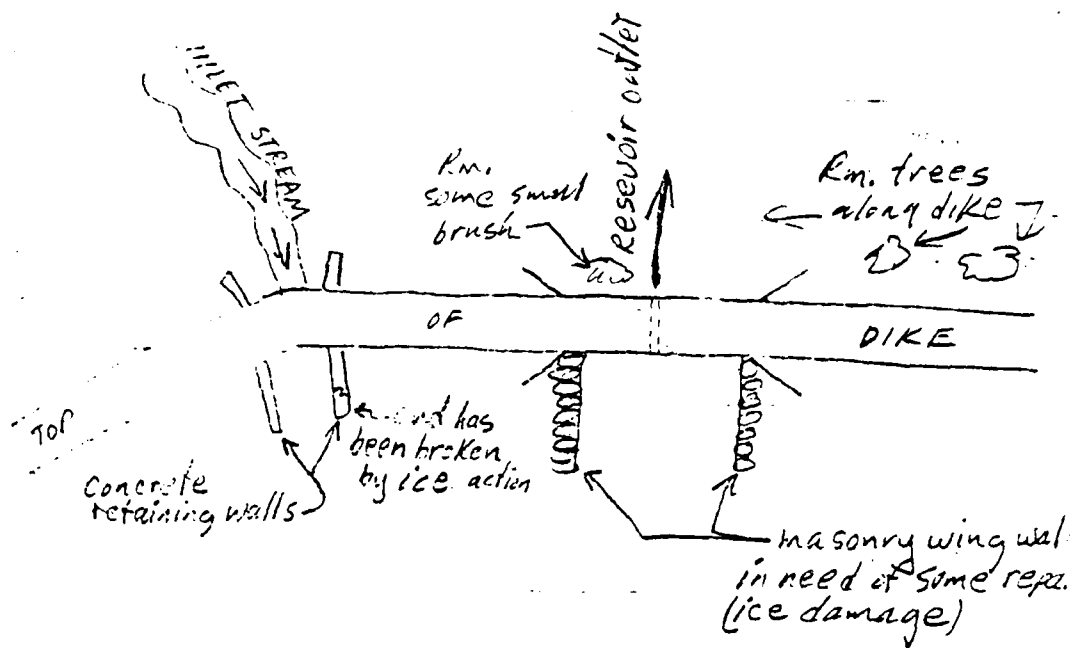 INLET STREAM
Resevoir outlet
Rm.
some small
brush
Rm. trees
along dike
TOP
OF
DIKE
end has
been broken
by ice action
Concrete
retaining walls
masonry wing wal
in need of some repa
(ice damage)